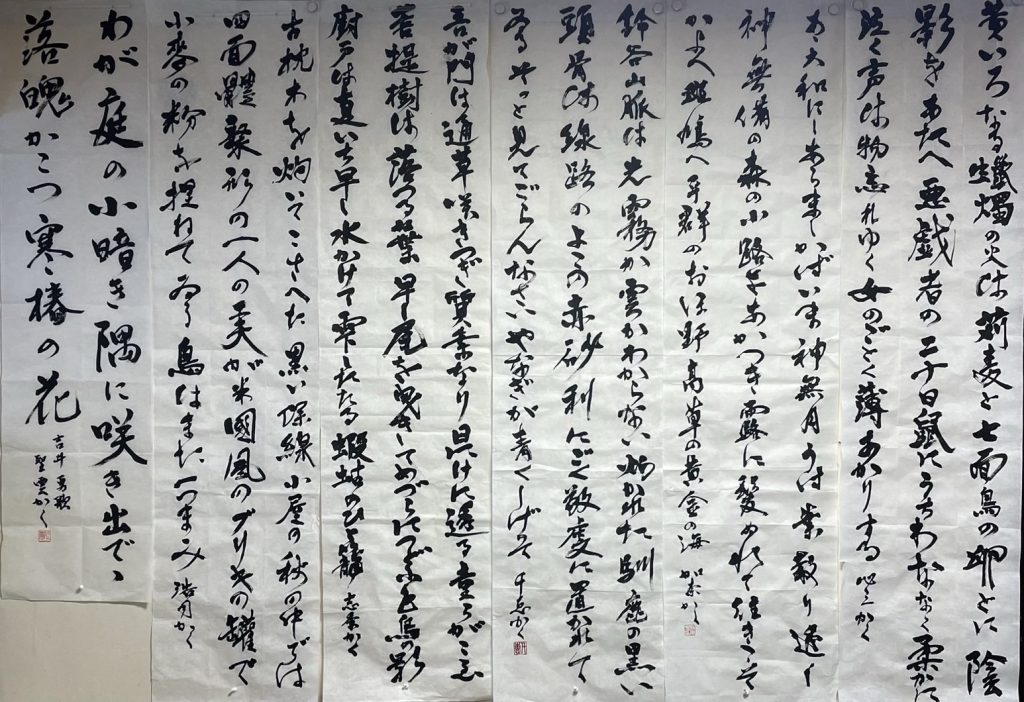 黄いろなる蠟燭の火は蕎麦と七面鳥の卵とに陰
影をあたへ悪戯者の二十日鼠にうちわななく柔かに
泣く声は物忘れゆく女のごとく薄あかりする
ああ大和にしあらましかばいま神無月うは葉散り透く
神無備の森の小路をあかつき露に髪ぬれて往きこそ
かよへ斑鳩へ平群のおほ野高草の黄金の海
鈴谷山脈は光霧か雲かわからない灼かれた馴鹿の黒い
頭骨は線路のよこの赤砂利にごく敬虔に置かれて
ゐるそっと見てごらんなさいやなぎが青くしげって
吾が門は通草咲きつぎ質素なり日けに透る童らがこゑ
菩提樹は落つる葉早し尾を曳きてめづらに 鳥の影
廚戸は 早し水かけて雫したたる蝦蛄のひと籠
古枕木を灼いてこさへた黒い保線小屋の秋の中では
四面體聚形の一人の工夫が米國風のブリキの罐で
小麥の粉を捏ねてゐる鳥はまた一つまみ 浩月かく
わが庭の小暗き隅に咲き出でゝ
落魄かこつ寒椿の花
吉井勇歌
聖雲かく